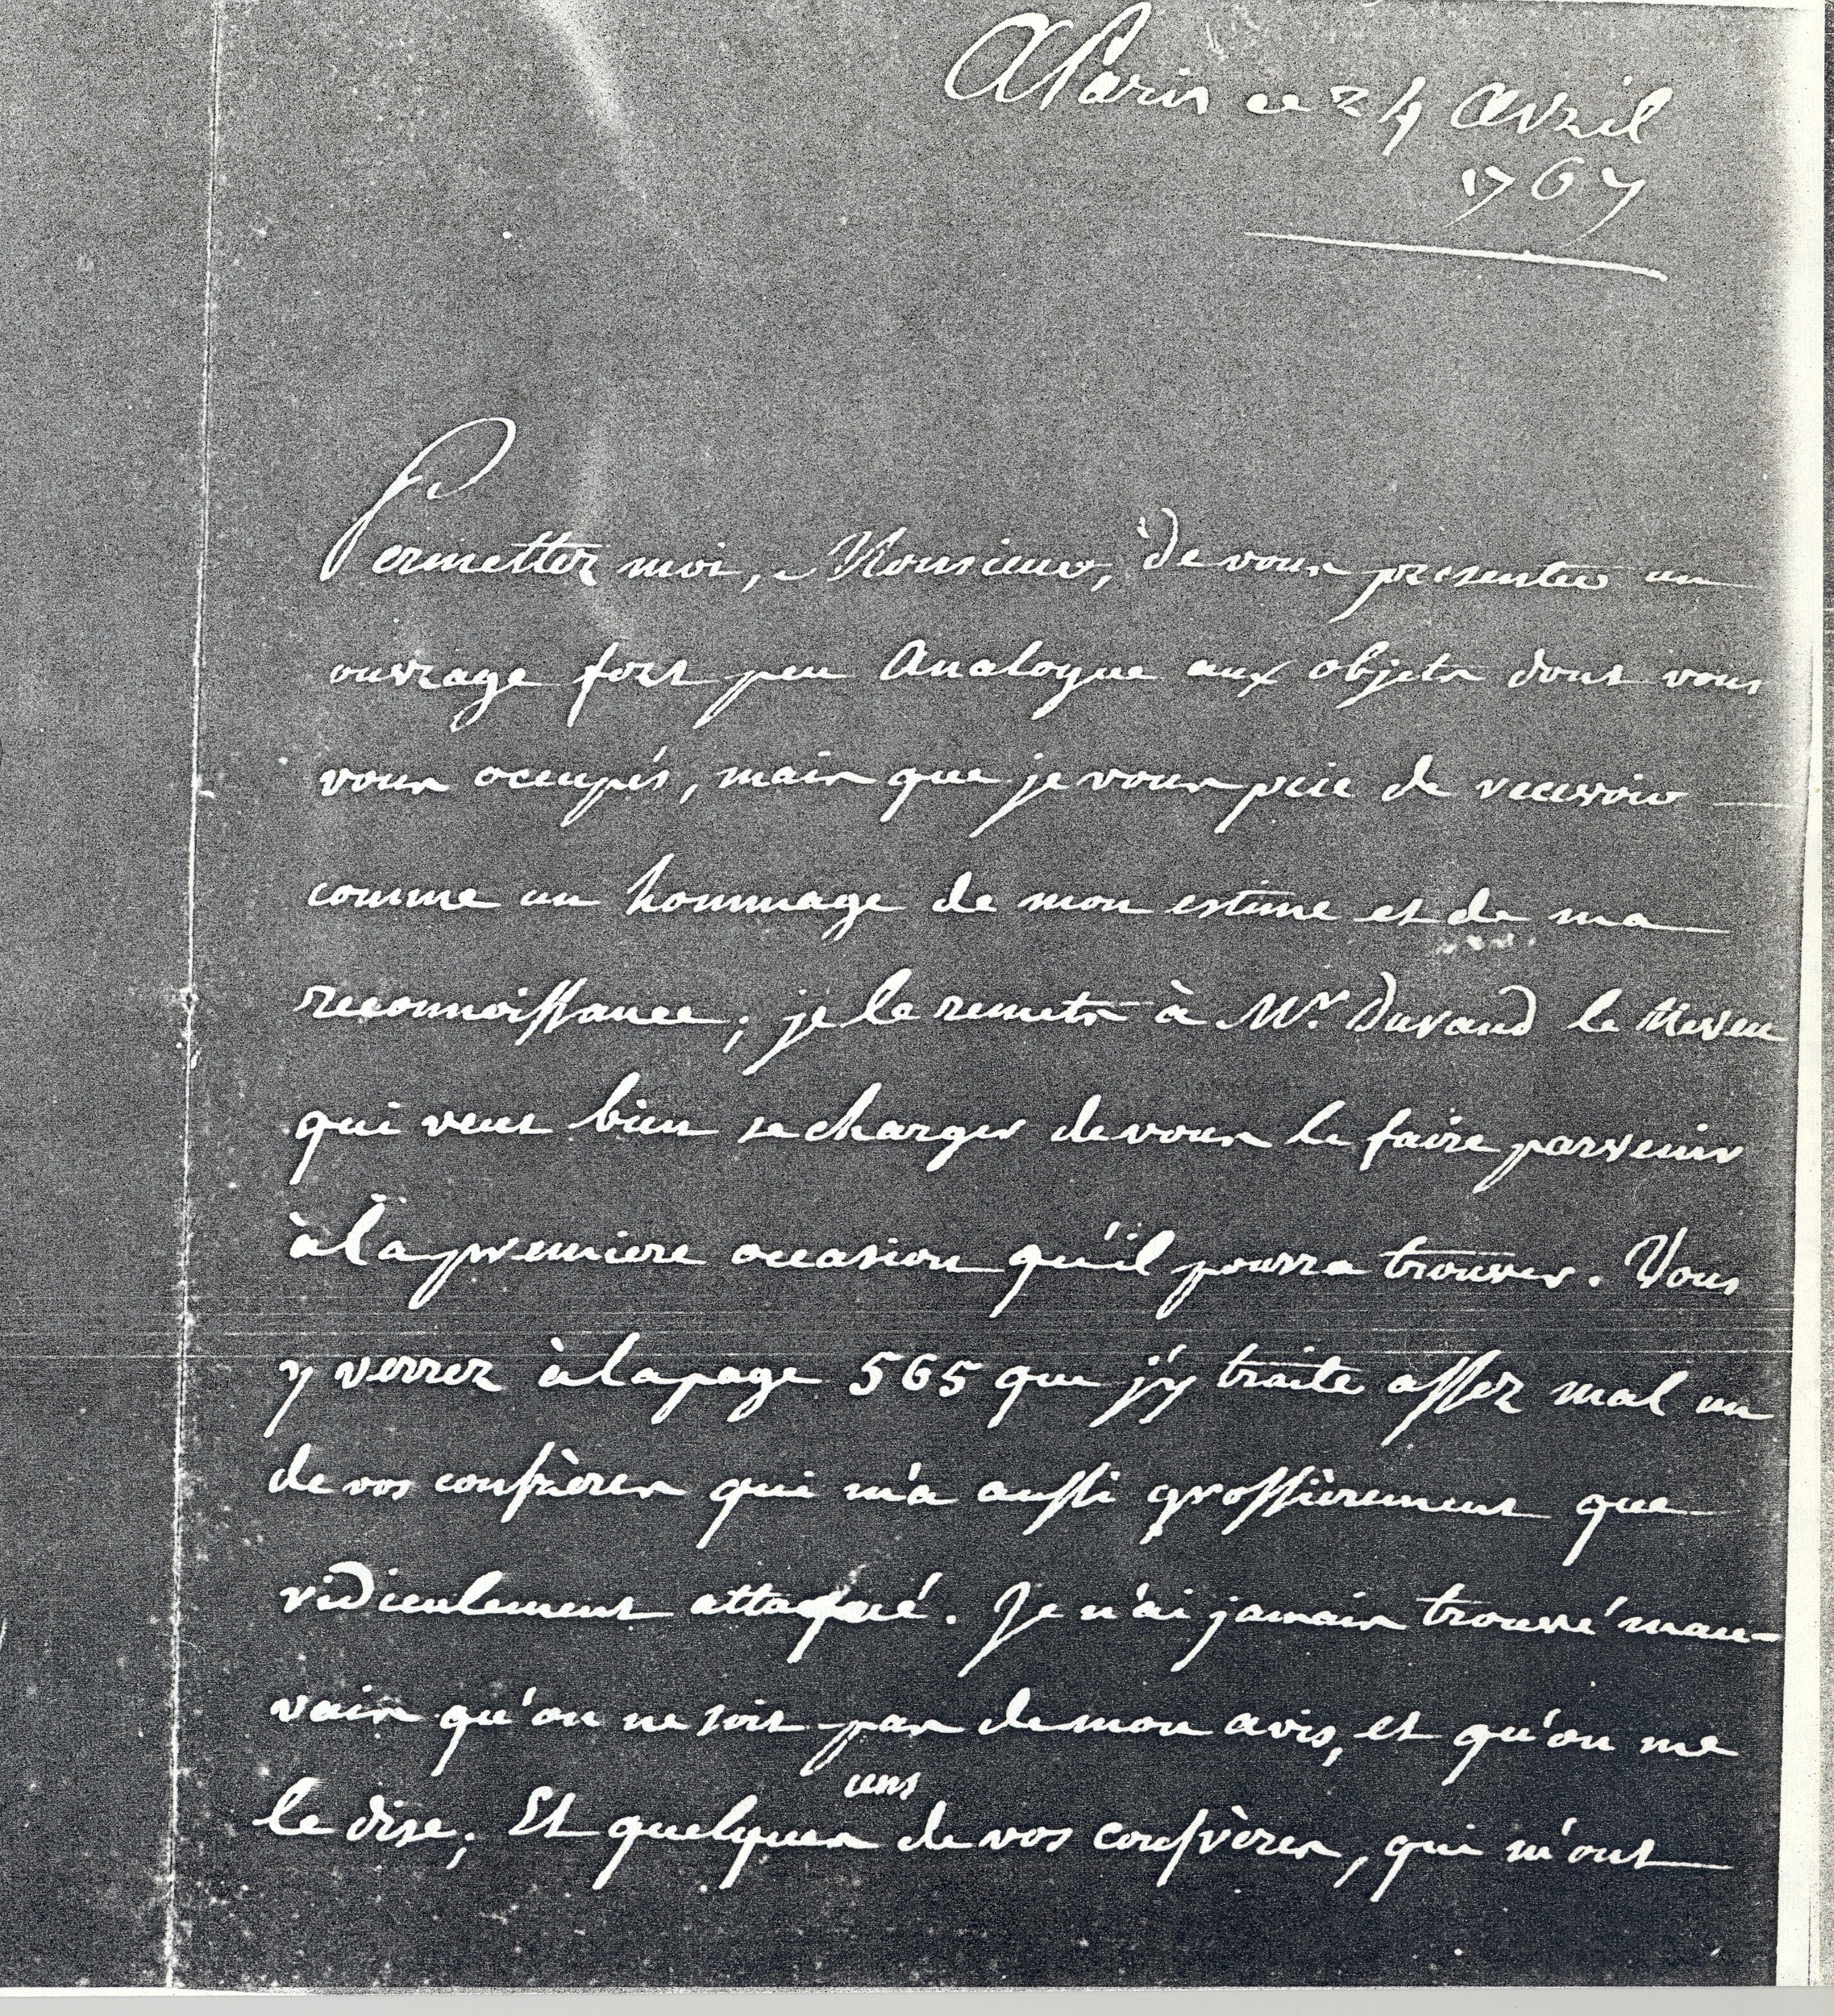 A Paris ce 24 Avril
1767
Permettez moi, Monsieur, de vous presenter un
ouvrage fort peu Analogue aux objets dont vous
vous occupés, mais que je vous prie de recevoir
comme un hommage de mon estime et de ma
reconnoissance; je le remets à Mr. Durand le Neveu
qui veut bien se charger de vous le faire parvenir
à la premiere occasion qu'il pourra trouver. Vous
y verrez à la page 565 que j'y traite assez mal un
de vos confrères qui m'a aussi grossièrement que
ridiculement attaqué. Je n'ai jamais trouvé mau-
vais qu'on ne soit pas de mon avis, et qu'on me
le dise; Et quelques uns de vos confrères, qui m'ont